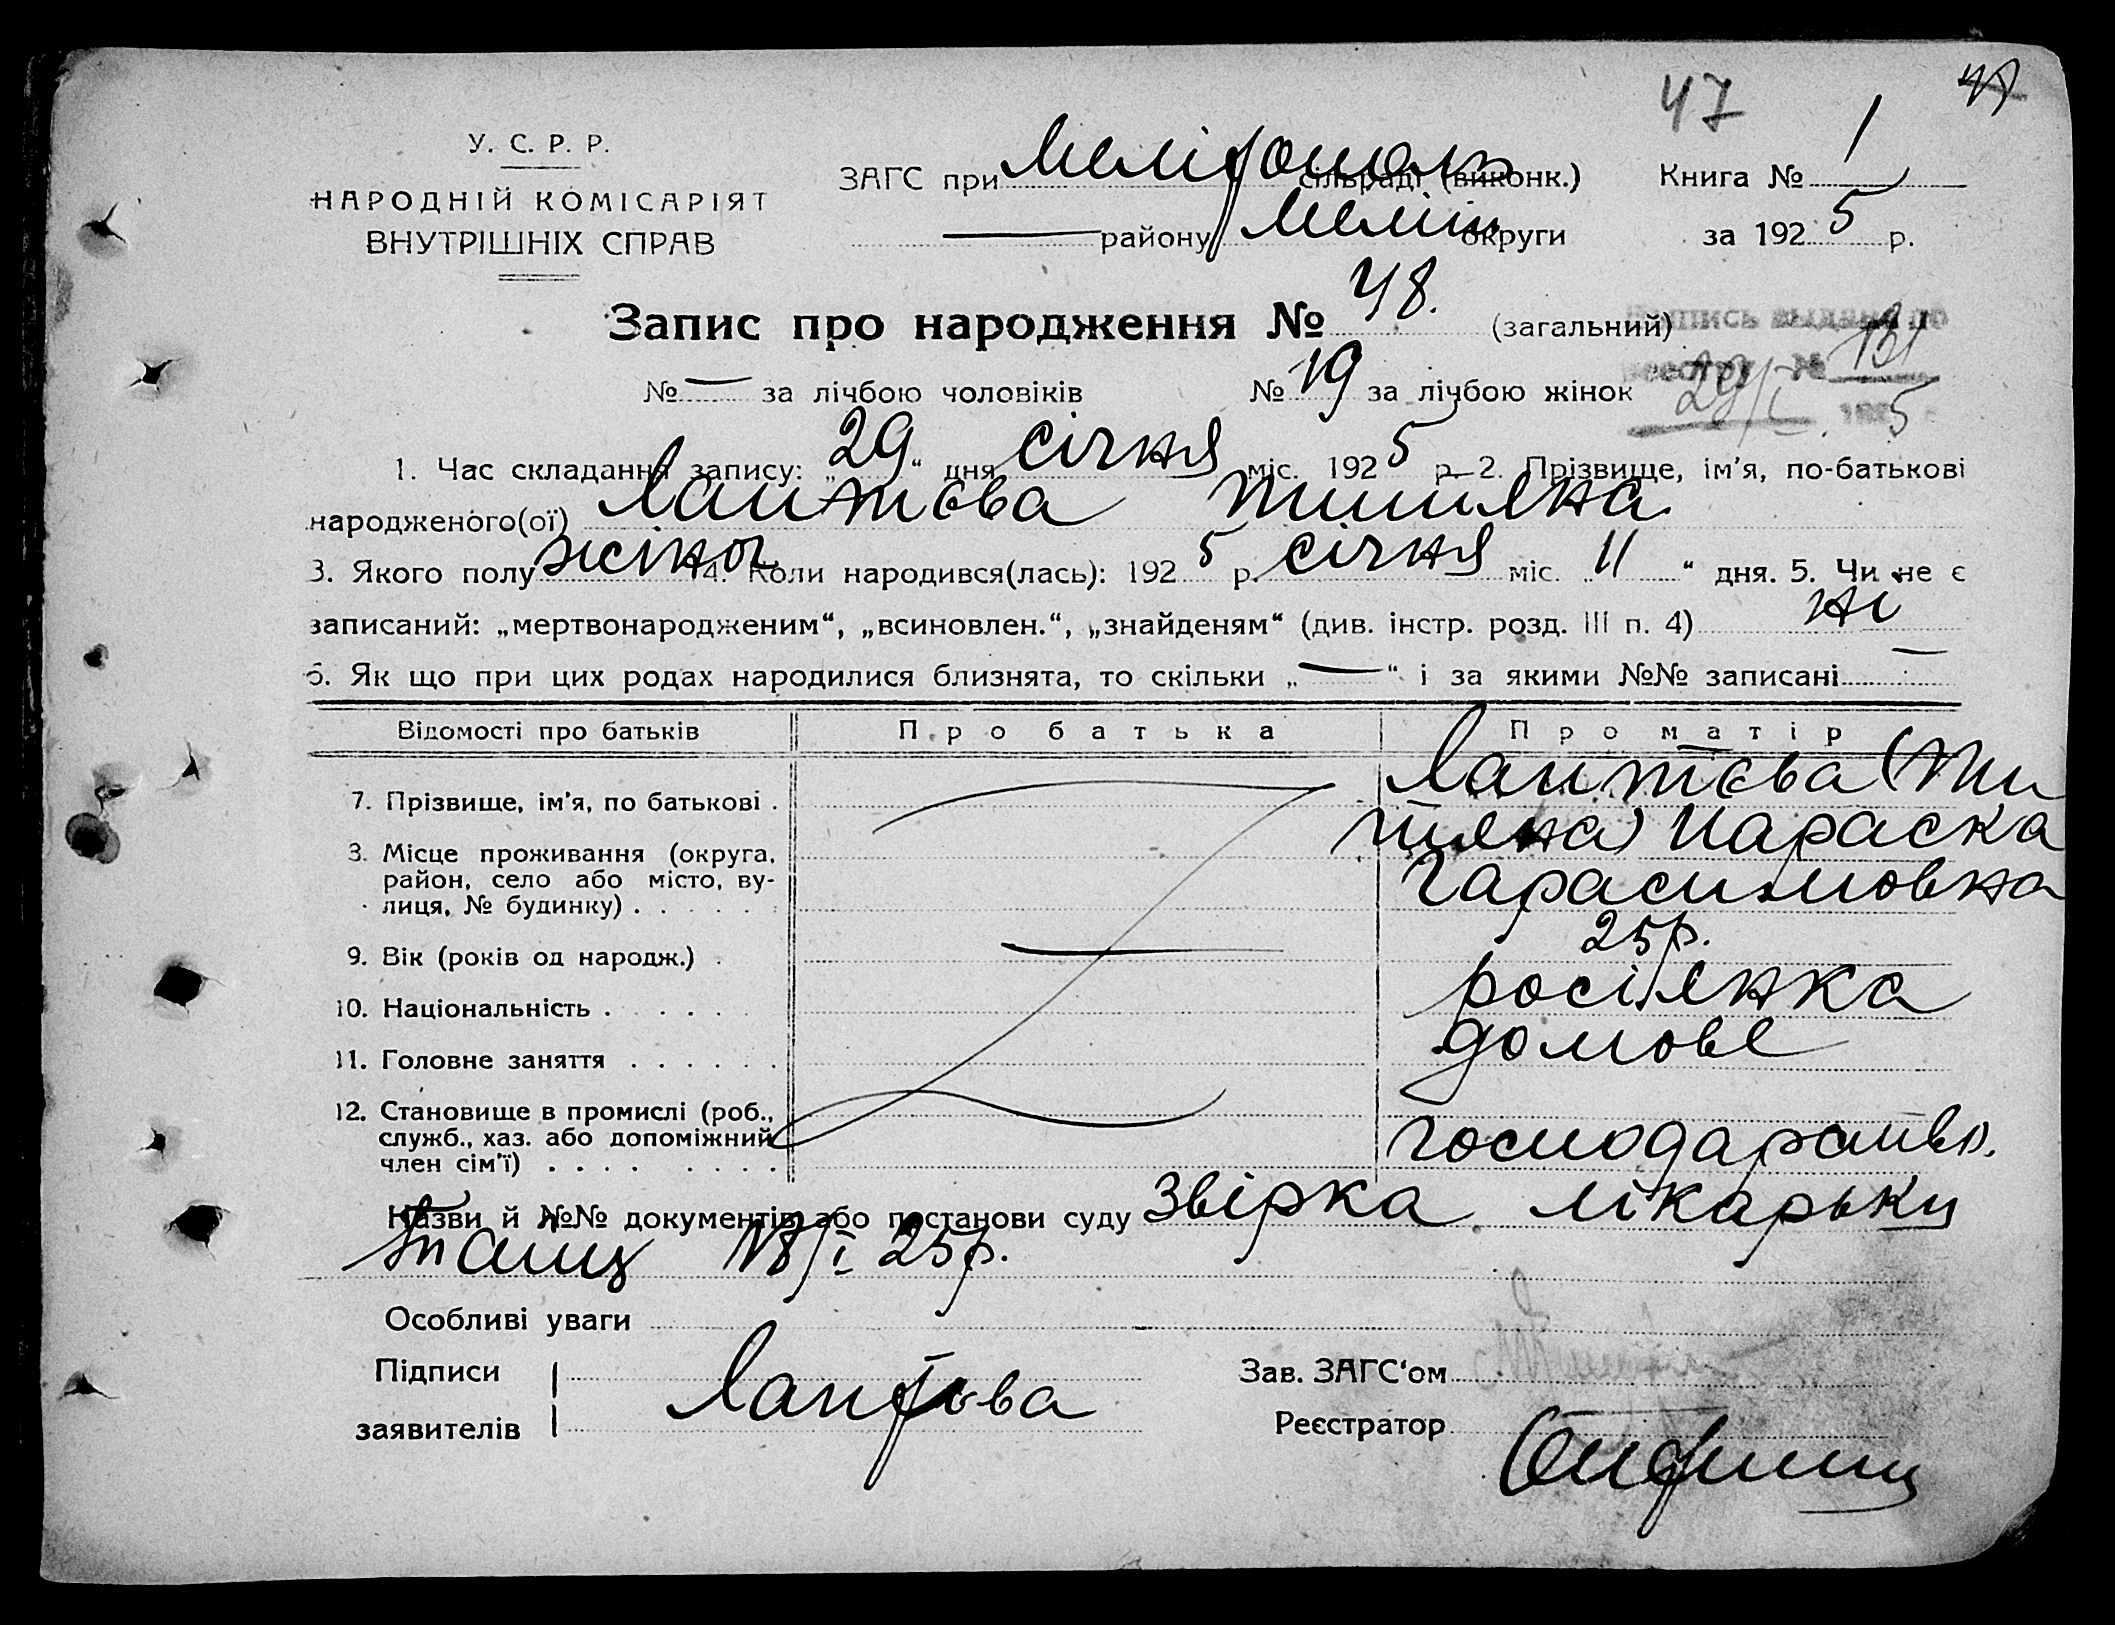 47
У. С. Р. Р.
НАРОДНІЙ КОМІСАРІЯТ
ВНУТРІШНІХ СПРАВ
ЗАГС при Мелітополь сільраді (виконк.)
— району Меліт. округи
Книга № 1
за 1925 р.
Запис про народження № 48. (загальний)
№ — за лічбою чоловіків № 19 за лічбою жінок
29/I 5
1. Час складання запису: „29“ дня січня міс. 1925 р. 2. Прізвище, ім'я, по-батькові
народженого(ої) Лаптєва
3. Якого полу жіноч 4. Коли народився(лась): 1925 р. січня міс. „11“ дня. 5. Чи не є
записаний: „мертвонародженим“, „всиновлен.“, „знайденям“ (див. інстр. розд. III п. 4) ні
6. Як що при цих родах народилися близнята, то скільки „—“ і за якими №№ записані —
Відомості про батьків Про батька Про матір
7. Прізвище, ім'я, по батькові . Лаптєва
Параска
Гарасимовна
8. Місце проживання (округа,
район, село або місто, ву-
лиця, № будинку) . . . . .
9. Вік (років од народж.) . — 25 р.
10. Національність . . . . . . росіянка
11. Головне заняття . . . . . . домове
12. Становище в промислі (роб.,
служб., хаз. або допоміжний
член сім'ї) . . . . . . . . господарство.
Назви й №№ документів або постанови суду Звірка лікарьки
18/I 25 р.
Особливі уваги
Підписи
заявителів Лаптева
Зав. ЗАГС'ом
Реєстратор